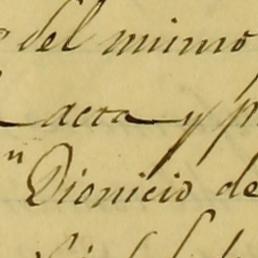 del mismo
acta y p
n Dionicio de